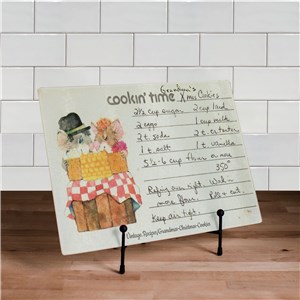 Grandma's
cookin' time Xmas Cookies
2½ cup sugar 2 cup lard
2 eggs 1 cup milk
2 t. soda 2 t. cr tartar
1 t. salt 1 t. vanilla
5½-6 cup flour or more
350°
Refrig over night. Work in
more flour. Roll & cut.
Keep air tight.
Vintage Recipes/Grandmas Christmas Cookies